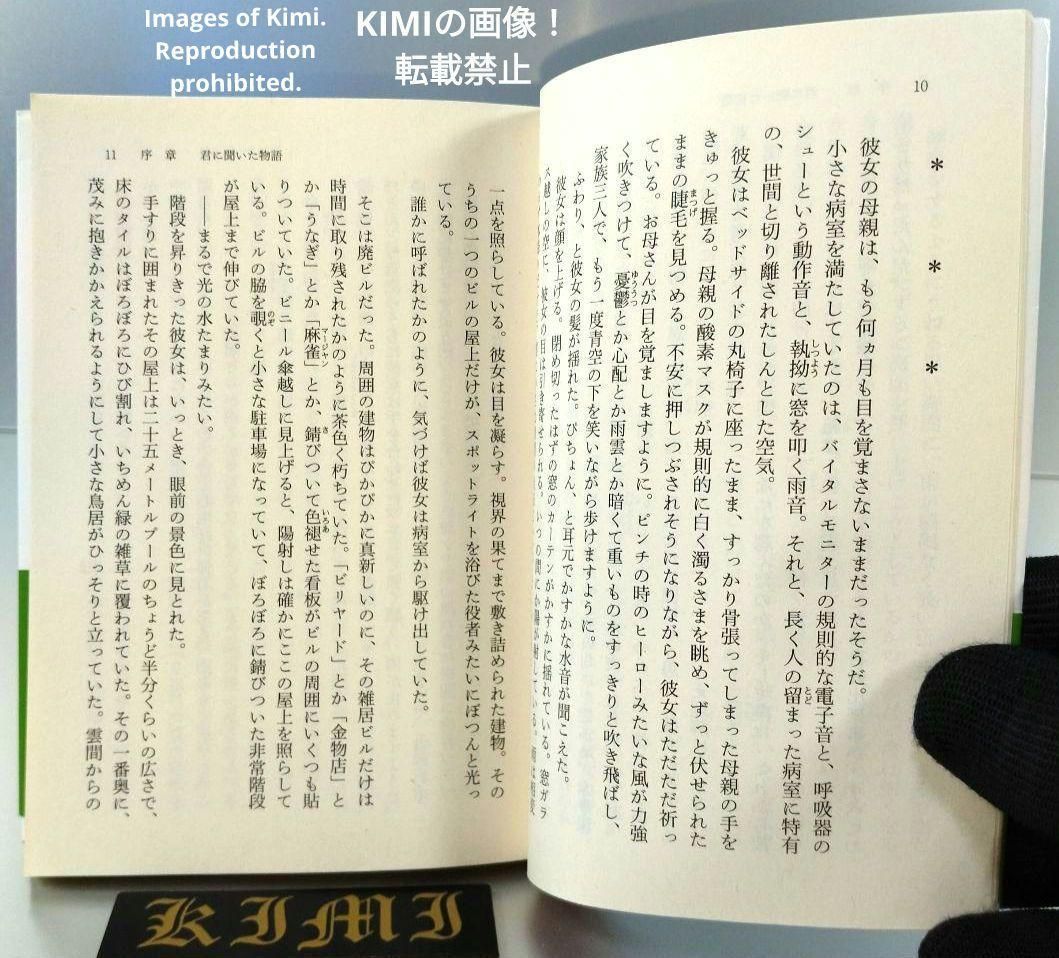 Images of Kimi.
Reproduction
prohibited.
KIMIの画像！
転載禁止
10
＊　＊　＊
彼女の母親は、もう何ヵ月も目を覚まさないままだったそうだ。
小さな病室を満たしていたのは、バイタルモニターの規則的な電子音と、呼吸器の
シューという動作音と、執拗に窓を叩く雨音。それと、長く人の留まった病室に特有
の、世間と切り離されたしんとした空気。
彼女はベッドサイドの丸椅子に座ったまま、すっかり骨張ってしまった母親の手を
きゅっと握る。母親の酸素マスクが規則的に白く濁るさまを眺め、ずっと伏せられた
ままの睫毛を見つめる。不安に押しつぶされそうになりながら、彼女はただただ祈っ
ている。お母さんが目を覚ましますように。ピンチの時のヒーローみたいな風が力強
く吹きつけて、憂鬱とか心配とか雨雲とか暗くて重いものをすっきりと吹き飛ばし、
家族三人で、もう一度青空の下を笑いながら歩けますように。
ふわり、と彼女の髪が揺れた。ぴちょん、と耳元でかすかな水音が聞こえた。
彼女は顔を上げる。閉め切ったはずの窓のカーテンがかすかに揺れている。窓ガラ
ス越しの空に、彼女の目は引き寄せられる。いつの間にか陽が射している。
11　序章　君に聞いた物語
一点を照らしている。彼女は目を凝らす。視界の果てまで敷き詰められた建物。その
うちの一つのビルの屋上だけが、スポットライトを浴びた役者みたいにぽつんと光っ
ている。
誰かに呼ばれたかのように、気づけば彼女は病室から駆け出していた。
そこは廃ビルだった。周囲の建物はぴかぴかに真新しいのに、その雑居ビルだけは
時間に取り残されたかのように茶色く朽ちていた。「ビリヤード」とか「金物店」と
か「うなぎ」とか「麻雀」とか、錆びついて色褪せた看板がビルの周囲にいくつも貼
りついていた。ビニール傘越しに見上げると、陽射しは確かにここの屋上を照らして
いる。ビルの脇を覗くと小さな駐車場になっていて、ぼろぼろに錆びついた非常階段
が屋上まで伸びていた。
――まるで光の水たまりみたい。
階段を昇りきった彼女は、いっとき、眼前の景色に見とれた。
手すりに囲まれたその屋上は二十五メートルプールのちょうど半分くらいの広さで、
床のタイルはぼろぼろにひび割れ、いちめん緑の雑草に覆われていた。その一番奥に、
茂みに抱きかかえられるようにして小さな鳥居がひっそりと立っていた。雲間からの
KIMI